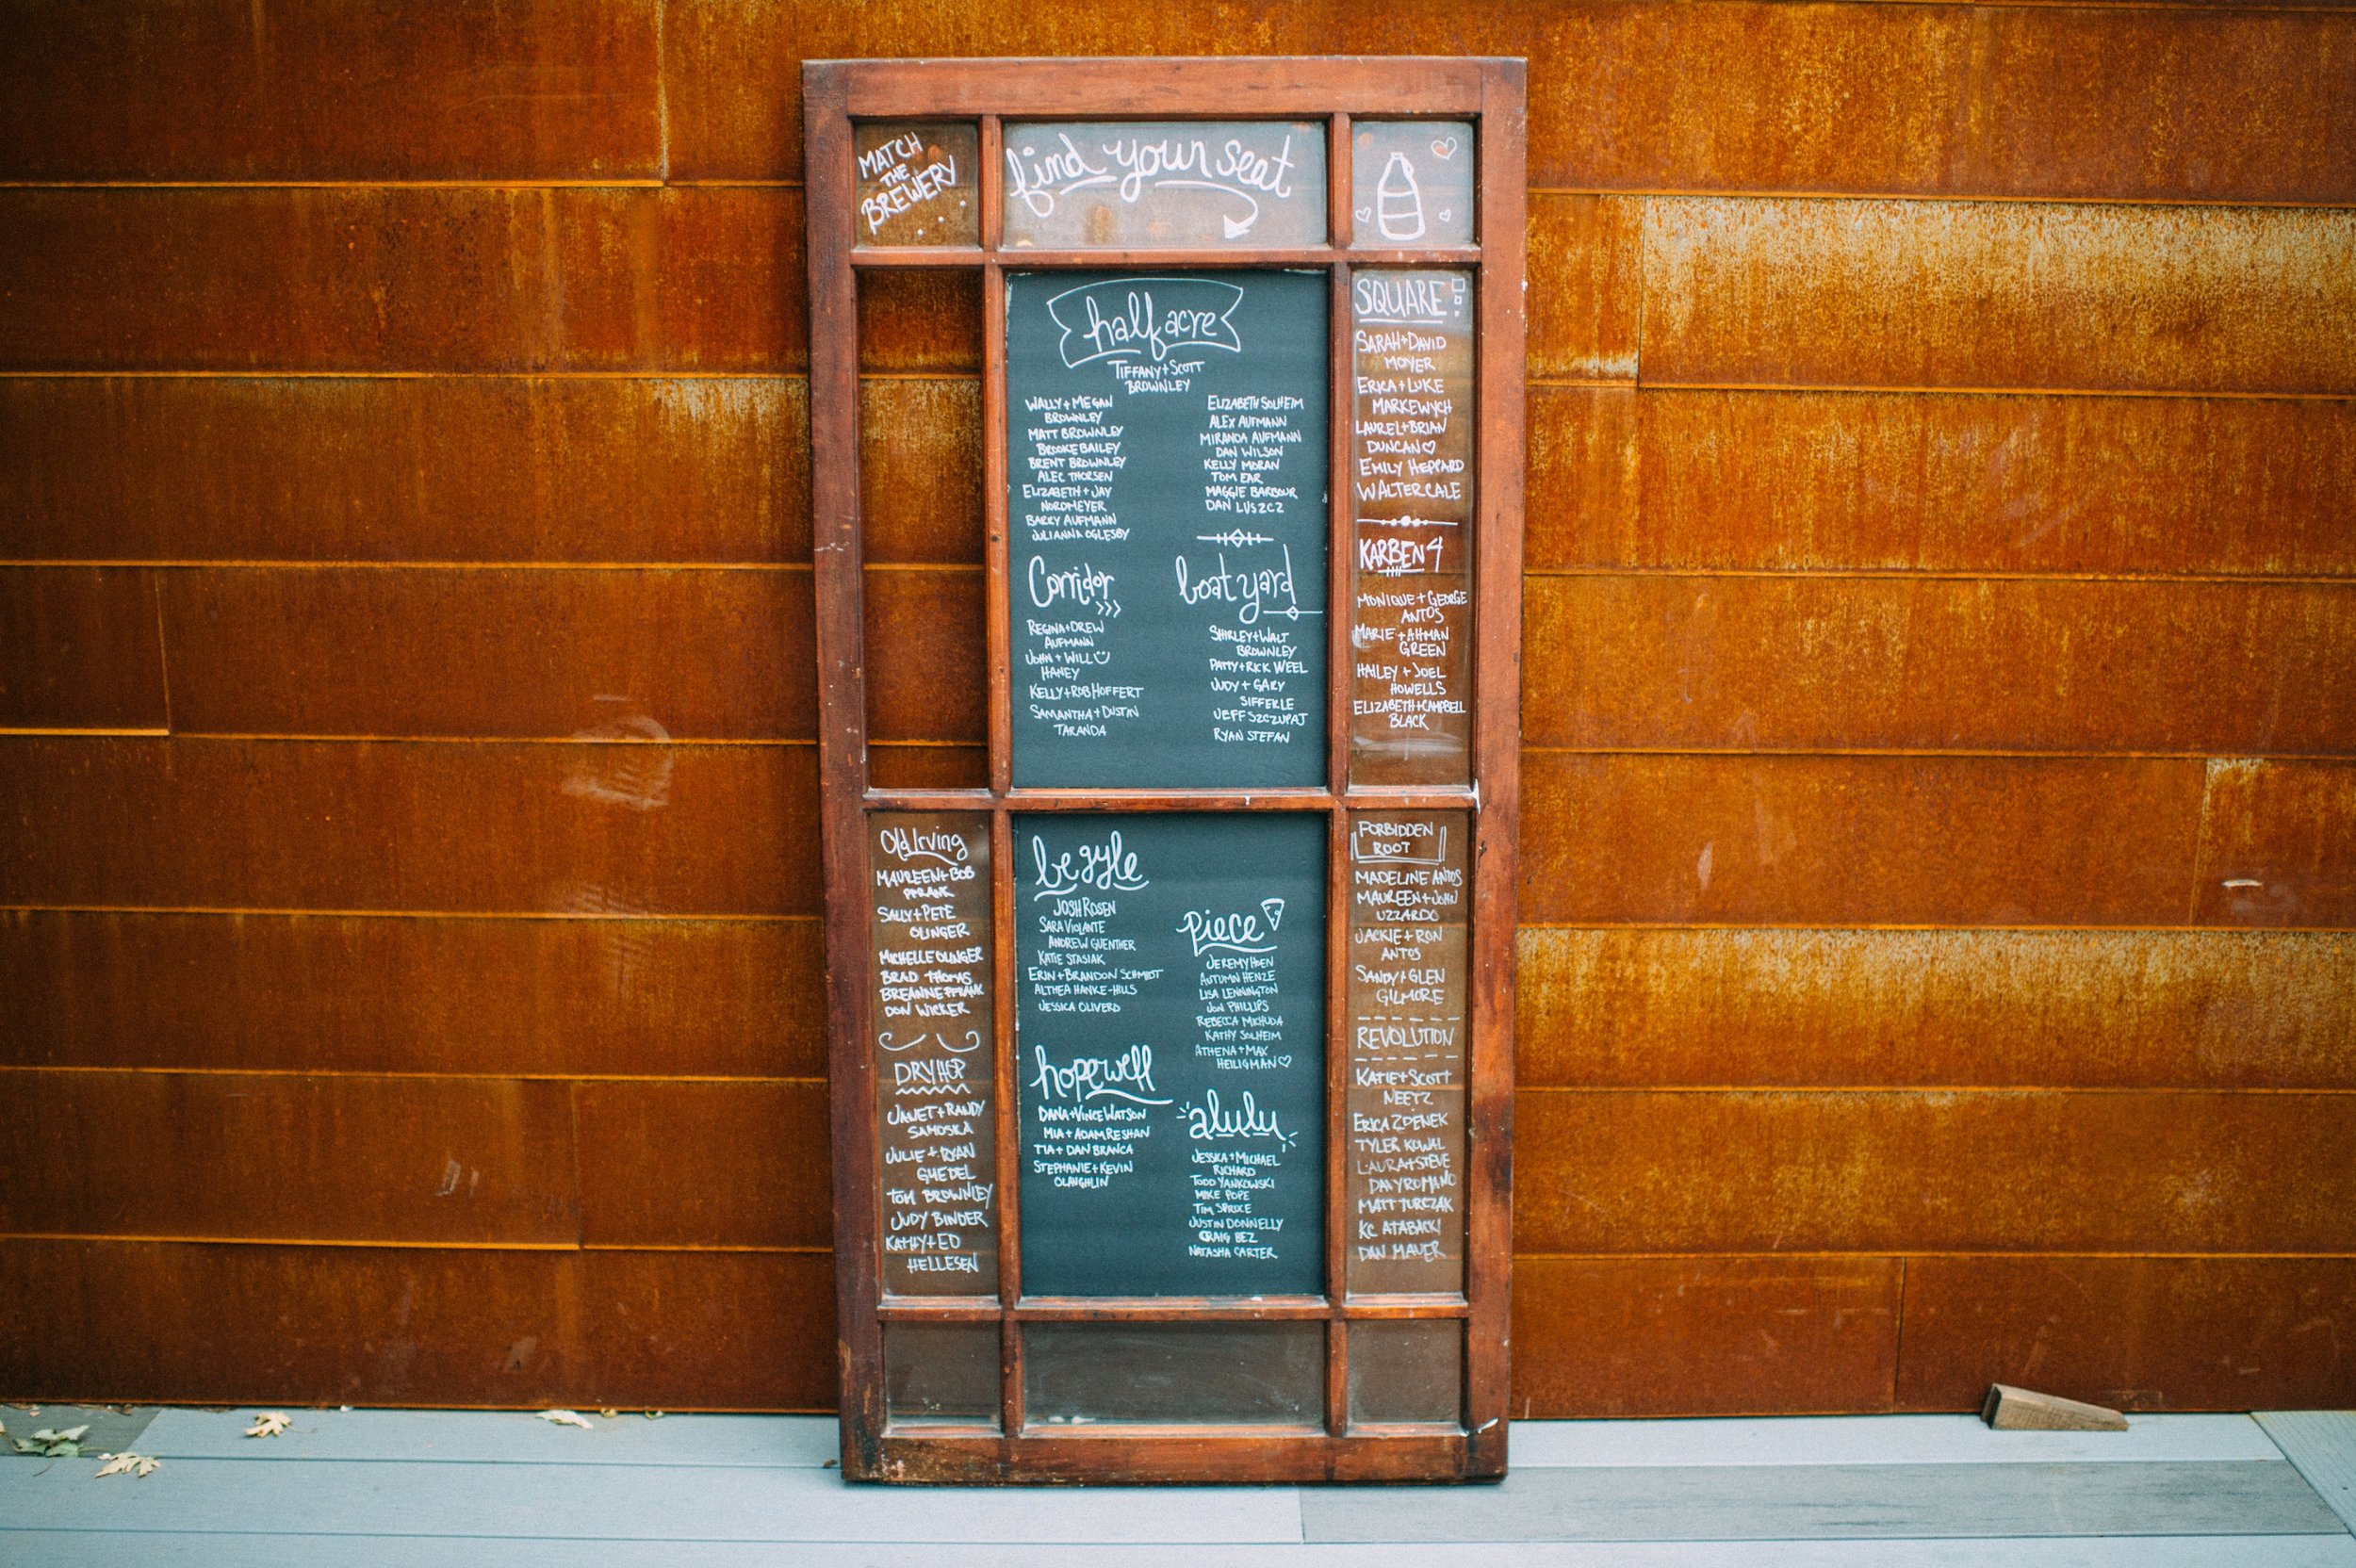 MATCH
THE
BREWERY
find your seat
half acre
TIFFANY + SCOTT
BROWNLEY
WALLY + MEGAN
BROWNLEY
MATT BROWNLEY
BROOKE BAILEY
BRENT BROWNLEY
ALEC THORSEN
ELIZABETH + JAY
NORDMEYER
BARRY AUFMANN
JULIANNA OGLESBY
ELIZABETH SOLHEIM
ALEX AUFMANN
MIRANDA AUFMANN
DAN WILSON
KELLY MORAN
TOM EAR
MAGGIE BARBOUR
DAN LUSZCZ
Corridor
REGINA + DREW
AUFMANN
JOHN + WILL
HANEY
KELLY + ROB HOFFERT
SAMANTHA + DUSTIN
TARANDA
boat yard
SHIRLEY + WALT
BROWNLEY
PATTY + RICK WEEL
JUDY + GARY
SIFFERLE
JEFF SZCZUPAJ
RYAN STEFAN
SQUARE
SARAH + DAVID
MOYER
ERICA + LUKE
MARKEWYCH
LAUREL + BRIAN
DUNCAN
EMILY HEPPARD
WALTER CALE
KARBEN 4
MONIQUE + GEORGE
ANTOS
MARIE + AHMAN
GREEN
HAILEY + JOEL
HOWELLS
ELIZABETH + CAMPBELL
BLACK
Old Irving
MAUREEN + BOB
PFRANK
SALLY + PETE
OLINGER
MICHELLE OLINGER
BRAD THOMAS
BREANNE PFRANK
DON WICKER
DRYHOP
JANET + RANDY
SAMOSKA
JULIE + RYAN
GMEDEL
TOM BROWNLEY
JUDY BINDER
KATHY + ED
HELLESEN
begyle
JOSH ROSEN
SARA VIOLANTE
ANDREW GUENTHER
KATIE STASIAK
ERIN + BRANDON SCHMIDT
ALTHEA HANKE-HILLS
JESSICA OLIVERO
hopewell
DANA + VINCE WATSON
MIA + ADAM RESHAN
TIA + DAN BRANCA
STEPHANIE + KEVIN
OLAUGHLIN
piece
JEREMY HOEN
AUTUMN HENZE
LISA LENNINGTON
JON PHILLIPS
REBECCA MICHUDA
KATHY SOLHEIM
ATHENA + MAX
HEILIGMAN
alulu
JESSICA + MICHAEL
RICHARD
TODD YANKOWSKI
MIKE POPE
TIM SPRUCE
JUSTIN DONNELLY
CRAIG BEZ
NATASHA CARTER
FORBIDDEN
ROOT
MADELINE ANTOS
MAUREEN + JOHN
UZZARDO
JACKIE + RON
ANTOS
SANDY + GLEN
GILMORE
REVOLUTION
KATIE + SCOTT
NEETZ
ERICA ZDENEK
TYLER KOWAL
LAURA + STEVE
DAIYROMANO
MATT TURCZAK
KC ATABACKI
DAN MAUER